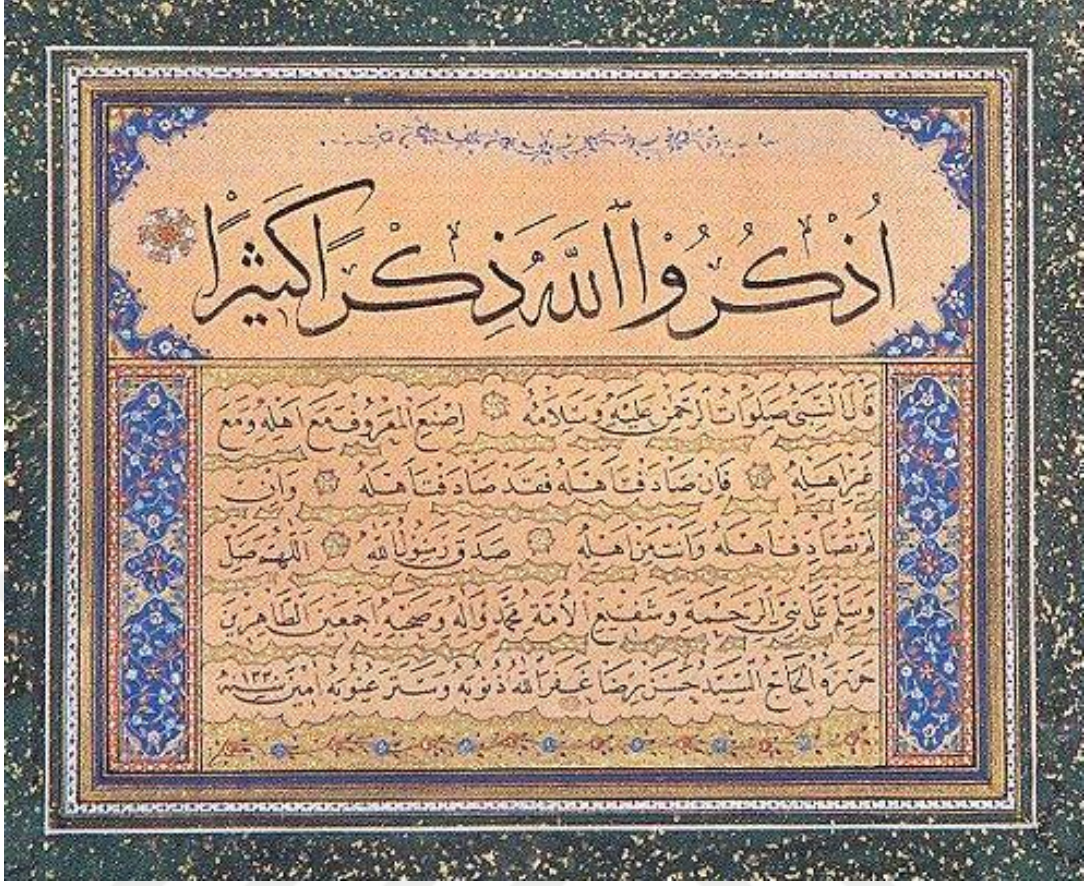 اُذْكُرُوْا اللّٰهَ ذِكْرًا كَثِيْرًا
قَالَ النَّبِيُّ صَلَوَاتُ الرَّحْمٰنِ عَلَيْهِ وَسَلَامُهُ اِصْنَعِ الْمَعْرُوفَ مَعَ اَهْلِهِ وَمَعَ
غَيْرِ اَهْلِهِ فَاِنْ صَادَفْتَ اَهْلَهُ فَقَدْ صَادَفْتَ اَهْلَهُ وَاِنْ
لَمْ تُصَادِفْ اَهْلَهُ وَاَنْتَ مِنْ اَهْلِهِ صَدَقَ رَسُولُ اللّٰهِ اَللّٰهُمَّ صَلِّ
وَسَلِّمْ عَلٰى نَبِيِّ الرَّحْمَةِ وَشَفِيعِ الْاُمَّةِ مُحَمَّدٍ وَاٰلِهِ وَصَحْبِهِ اَجْمَعِينَ الطَّاهِرِينَ
حَرَّرَهُ الْحَاجُّ السَّيِّدُ حَسَنْ رِضَا غَفَرَ اللّٰهُ ذُنُوبَهُ وَسَتَرَ عُيُوبَهُ اٰمِينَ سنة ١٣٣٠